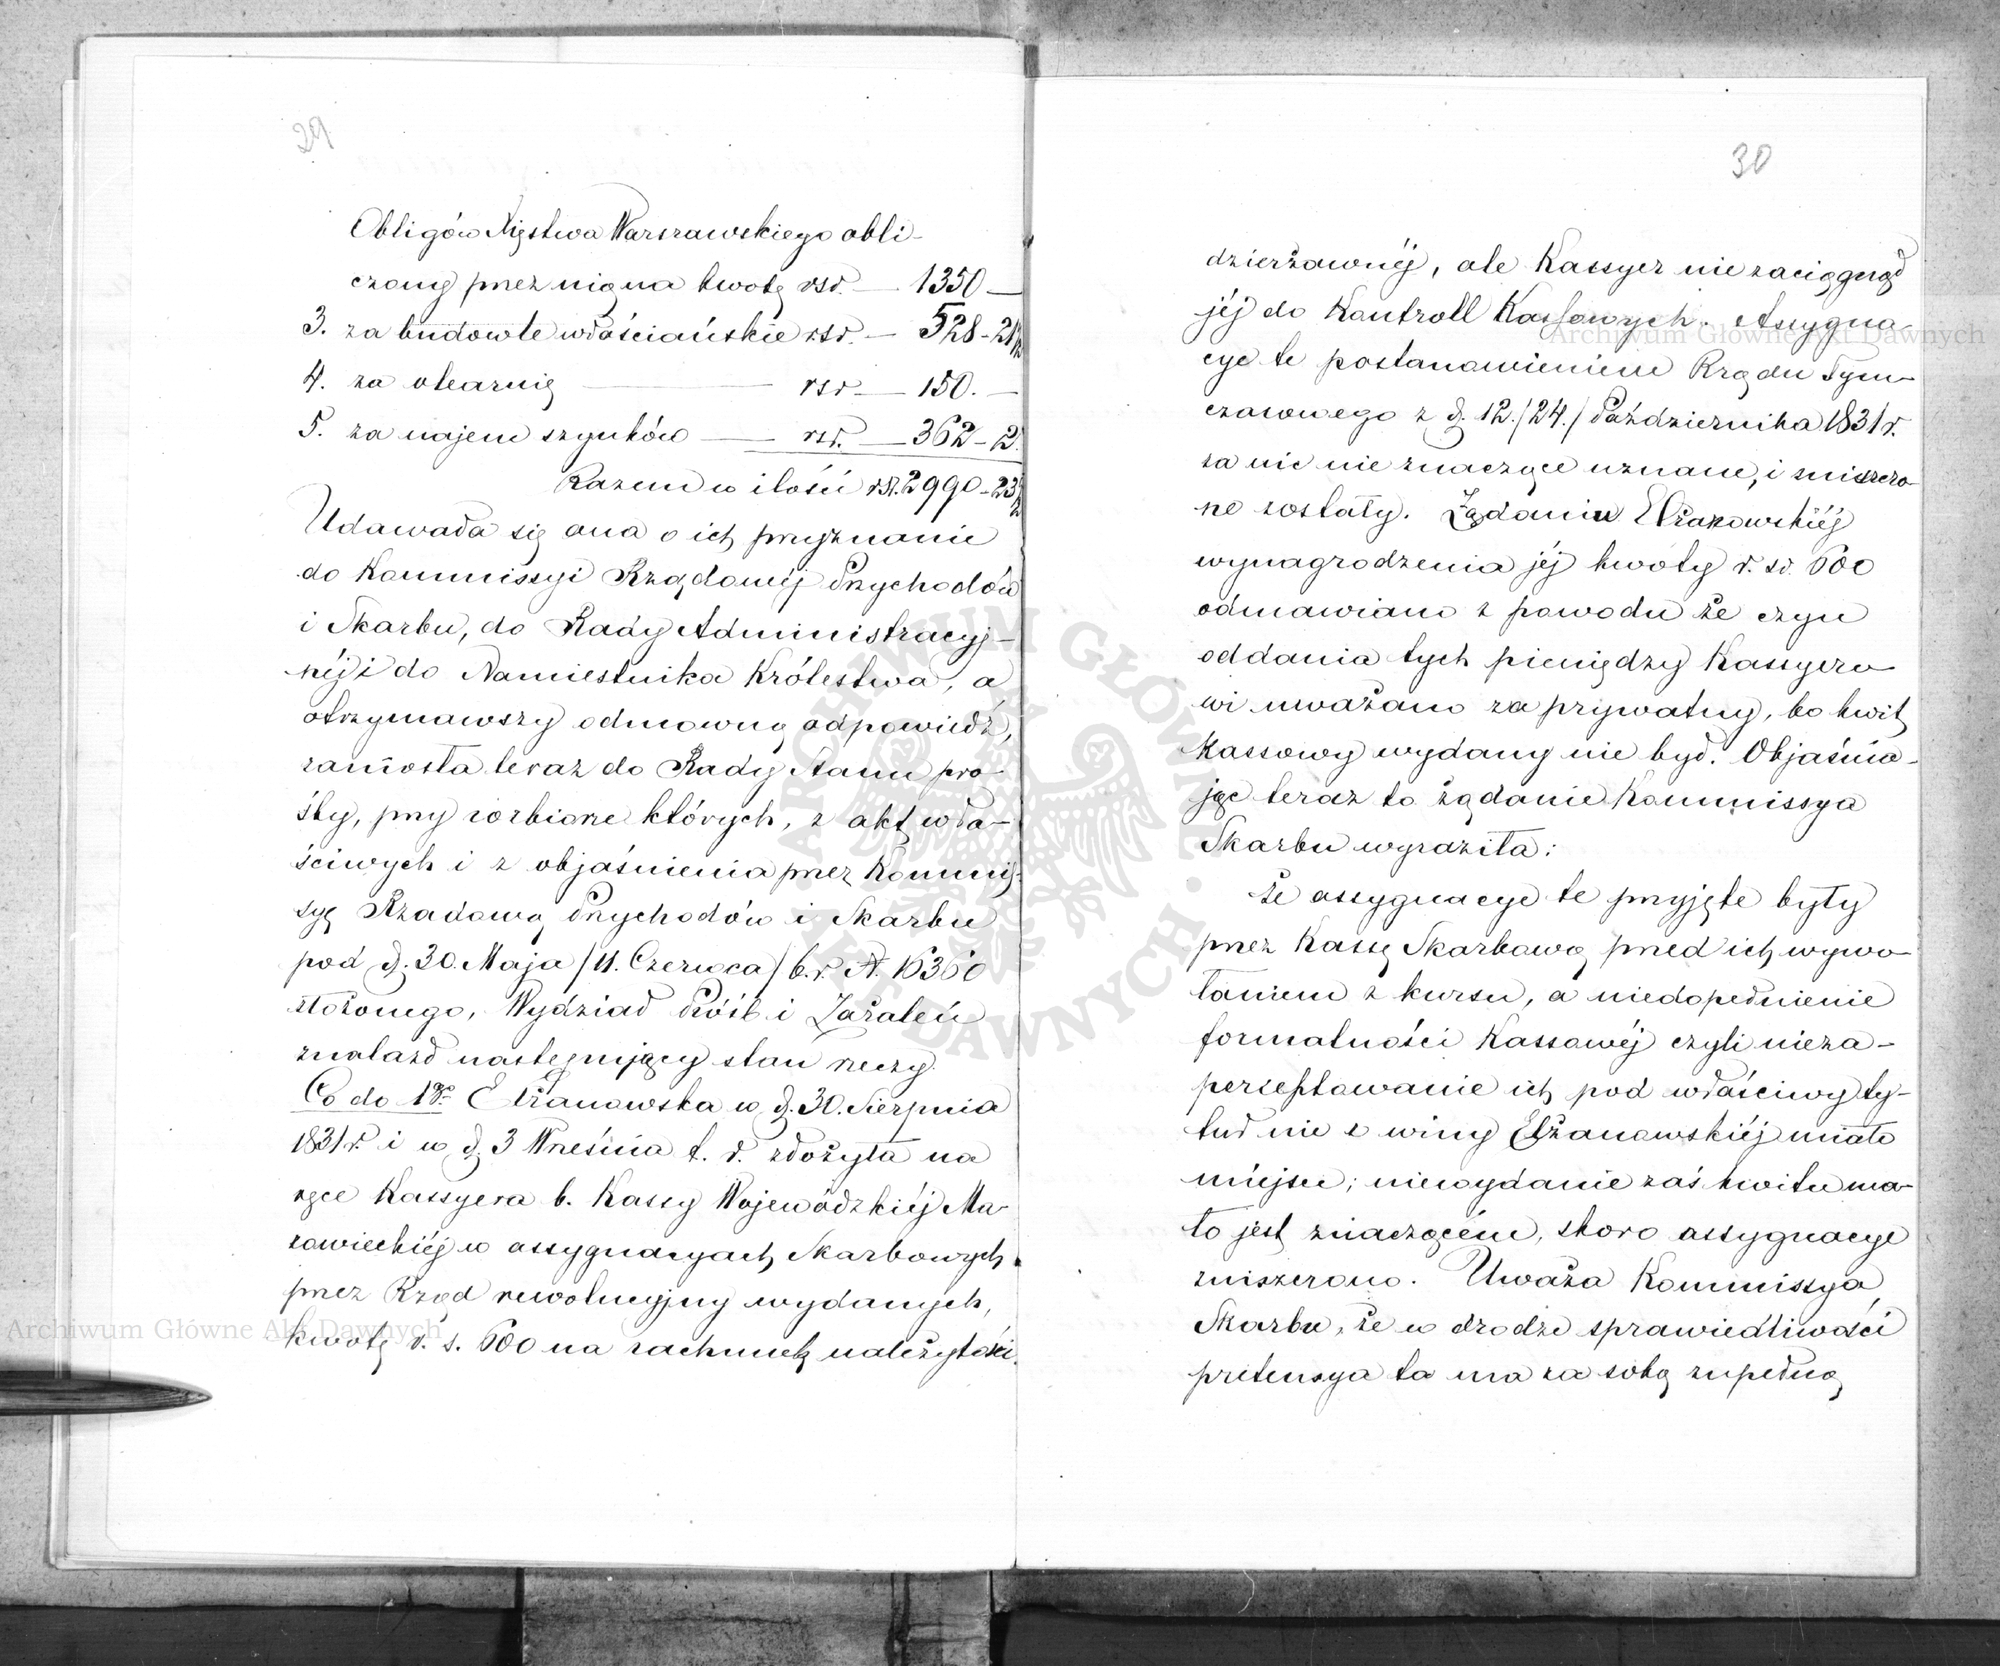 29
Obligów Xięstwa Warszawskiego obli-
czony przez nią na kwotę rsr. — 1350 —
3. za budowle włościańskie rsr. — 528 - 21½
4. za olearnię — rsr — 150. —
5. za najem szynków — rsr. — 362 - 2.
Razem w ilości rsr. 2990 - 23½
Udawała się ona o ich przyznanie
do Kommissyi Rządowéj Przychodów
i Skarbu, do Rady Administracyj-
néj i do Namiestnika Królestwa, a
otrzymawszy odmowną odpowiedź,
zaniosła teraz do Rady Stanu pro-
śby, przy rozbiorze których, z akt wła-
ściwych i z objaśnienia przez Kommis-
syę Rządową Przychodów i Skarbu
pod d. 30. Maja / 11. Czerwca / b. r. N. 16360
złożonego, Wydział Próśb i Zażaleń
znalazł następujący stan rzeczy.
Co do 1go Elżanowska w d. 30. Sierpnia
1831 r. i w d. 3 Września t. r. złożyła na
ręce Kassyera b. Kassy Wojewódzkiéj Ma-
zowieckiéj w assygnacyach Skarbowych
przez Rząd rewolucyjny wydanych,
kwotę r. s. 600 na rachunek należytości
30
dzierżawnéj, ale Kassyer nie zaciągnął
jéj do Kontroll Kassowych. Assygna-
cye te postanowieniem Rządu Tym-
czasowego z d. 12. / 24. / Października 1831 r.
za nic nie znaczące uznane, i zniszczo-
ne zostały. Żądaniu Elżanowskiéj
wynagrodzenia jéj kwoty r. sr. 600
odmawiano z powodu że czyn
oddania tych pieniędzy Kassyero-
wi uważano za prywatny, bo kwit
Kassowy wydany nie był. Objaśnia-
jąc teraz to żądanie Kommissya
Skarbu wyraziła:
że assygnacye te przyjęte były
przez Kassę Skarbową przed ich wywo-
łaniem z kursu, a niedopełnienie
formalności Kassowéj czyli nieza-
perceptowanie ich pod właściwy ty-
tuł nie z winy Elżanowskiéj miało
miejsce; niewydanie zaś kwitu ma-
ło jest znaczącém, skoro assygnacye
zniszczono. Uważa Kommissya
Skarbu, że w drodze sprawiedliwości
pretensya ta ma za sobą zupełną
Archiwum Główne Akt Dawnych
Archiwum Główne Akt Dawnych
ARCHIWUM GŁÓWNE AKT DAWNYCH